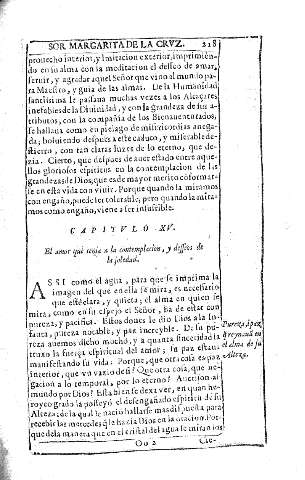 SOR MARGARITA DE LA CRVZ. 218
prouecho interior, y imitacion exterior, imprimién-
do en su alma con la meditacion el desseo de amar,
seruir, y agradar aquel Señor que vino al mundo pa-
ra Maestro, y guia de las almas. De la Humanidad
santissima se passaua muchas vezes a los Alcaçares
inefables de la Diuinidad, y con la grandeza de sus a-
tributos, con la compañia de los Bienauenturados,
se hallaua como en pielago de misericordias anega-
da; boluiendo despues a este caduco, y miserable de-
stierro, con tan claras luzes de lo eterno, que de-
zia. Cierto, que despues de auer estado entre aque-
llos gloriosos espiritus en la contemplacion de las
grandezas de Dios, que es de mayor merito conformar-
se en esta vida con viuir. Porque quando la miramos
con engaño, puede ser tolerable; pero quando la mira-
mos como engaño, viene a ser insufrible.
CAPITVLO XV.
El amor que tenia a la contemplacion, y desseos de
la soledad.
ASSI como el agua, para que se imprima la
imagen del que en ella se mira, es necesario
que estè clara, y quieta; el alma en quien se
mira, como en su espejo el Señor, ha de estar con
pureza, y pacifica. Estos dones le diò Dios a la In-
fanta, pureza notable, y paz increyble. De su pu-
reza auemos dicho mucho, y a quanta sinceridad la
truxo la fuerça espiritual del amor; su paz estaua
manifestando su vida: Porque, que otra cosa es paz
interior, que vn vazio desi? Que otra cosa, que ne-
gacion a lo temporal, por lo eterno? Auersion al
mundo por Dios? Esta bien se dexa ver, en quan he-
royco grado la posseyò el desengañado espiritu de su
Alteza: de la qual le naciò hallarse mas dispuesta para
recebir las mercedes q̃ le hazia Dios en la oracion. Por-
que de la manera que en el cristal del agua se miran los
Pureza, y paz
q̃ reynauã en
el alma de su
Alteza.
Oo 2 Cie-